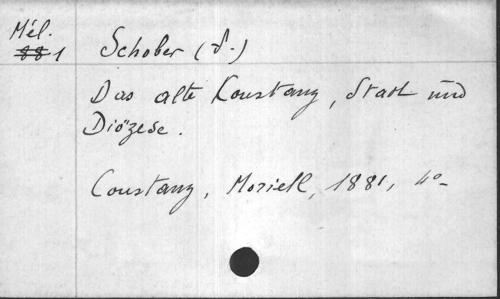 Mél.
881 Schober (F.)
Das alte Konstanz, Stadt und
Diözese.
Constanz, Moriell, 1881, 4º-